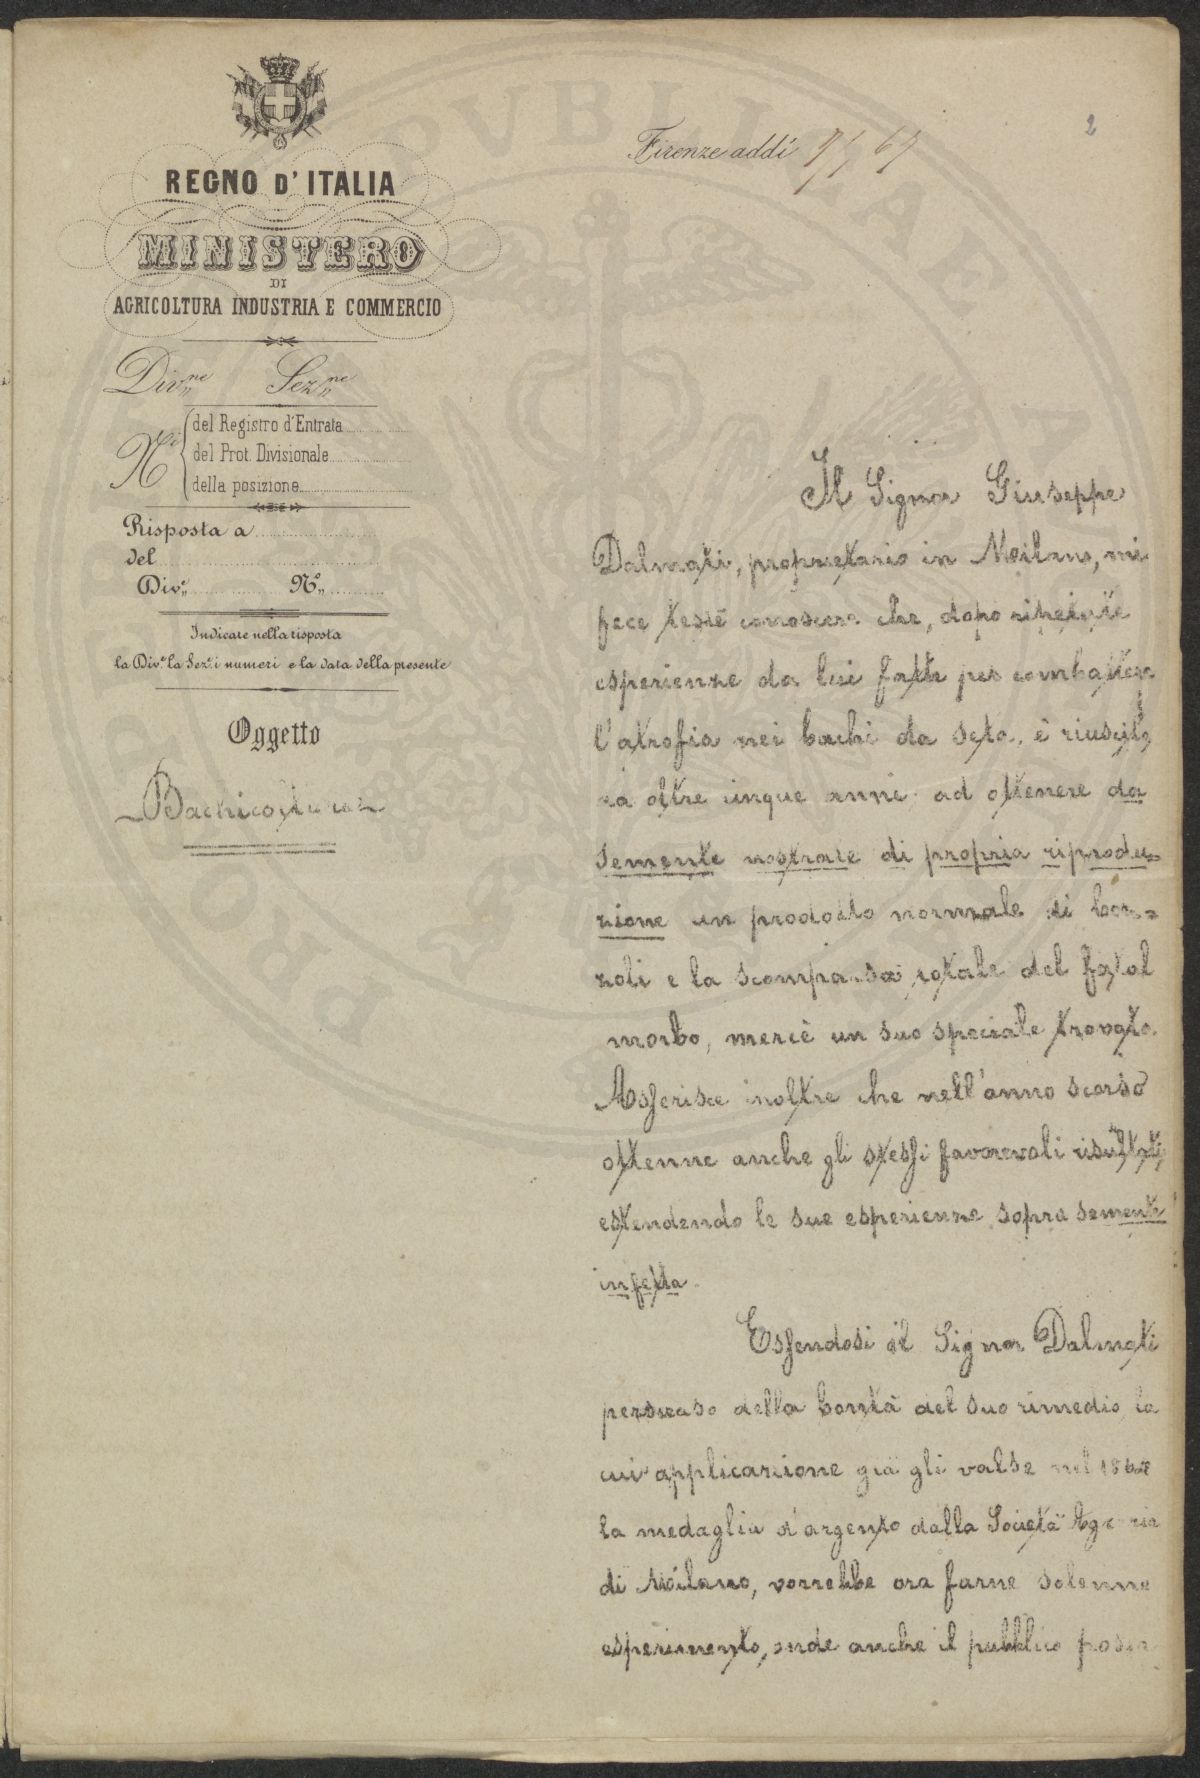 2
Firenze addì
REGNO D'ITALIA
MINISTERO
DI
AGRICOLTURA INDUSTRIA E COMMERCIO
Div.ne Sez.ne
N.i del Registro d'Entrata
del Prot. Divisionale
della posizione
Risposta a
del
Div.e N.o
Indicare nella risposta
la Div.e la Sez.e i numeri e la data della presente
Oggetto
Bachicoltura
Il Signor Giuseppe
Dalmati, proprietario in Milano, mi
fece testè conoscere che, dopo ripetute
esperienze da lui fatte per combattere
l'atrofia nei bachi da seta, è riuscito
da oltre cinque anni ad ottenere da
semente nostrale di propria riprodu=
zione un prodotto normale di boz=
zoli e la scomparsa totale del fatal
morbo, mercè un suo speciale trovato.
Asserisce inoltre che nell'anno scorso
ottenne anche gli stessi favorevoli risultati,
estendendo le sue esperienze sopra semente
infetta.
Essendosi il Signor Dalmati
persuaso della bontà del suo rimedio, la
cui applicazione già gli valse nel
la medaglia d'argento dalla Società Agraria
di Milano, vorrebbe ora farne solenne
esperimento, onde anche il pubblico possa